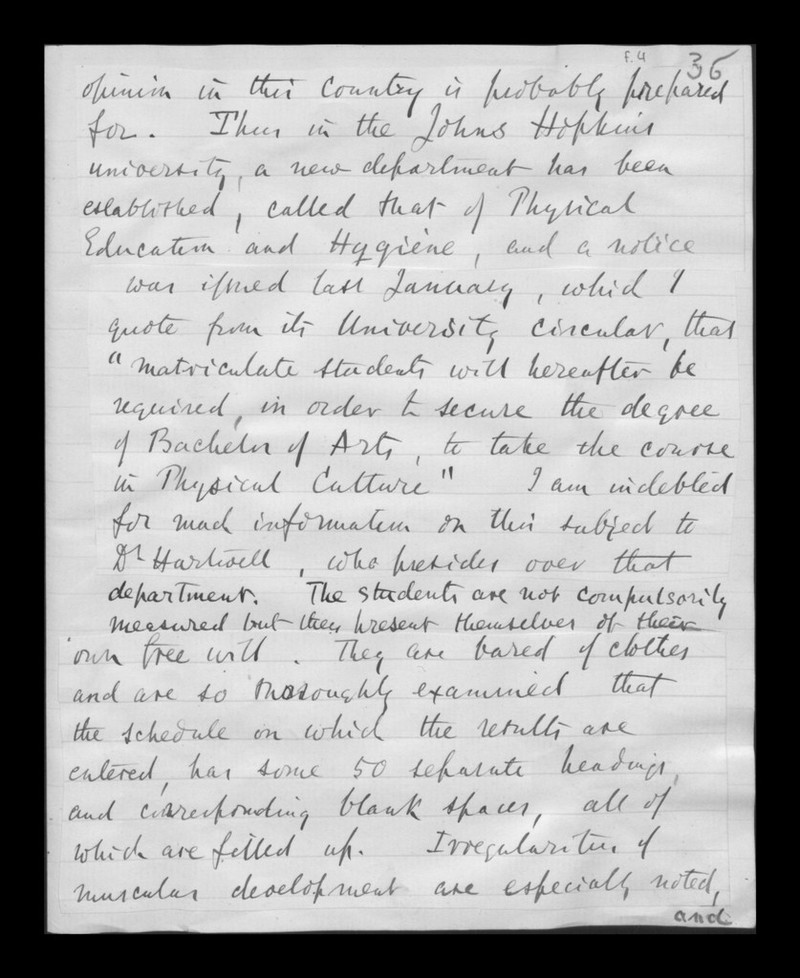 f.4 36
opinion in this country is probably prepared
for. Thus in the Johns Hopkins
university, a new department has been
established, called that of Physical
Education and Hygiène, and a notice
was issued last January, which I
quote from its University circular, that
"matriculate students will hereafter be
required, in order to secure the degree
of Bachelor of Arts, to take the course
in Physical Culture" I am indebted
for much information on this subject to
Dr Hartwell, who presides over that
department. The students are not compulsorily
measured but they present themselves of their
own free will. They are bared of clothes
and are so thoroughly examined that
the schedule on which the results are
entered, has some 50 separate headings,
and corresponding blank spaces, all of
which are filled up. Irregularities of
muscular development are especially noted,
and